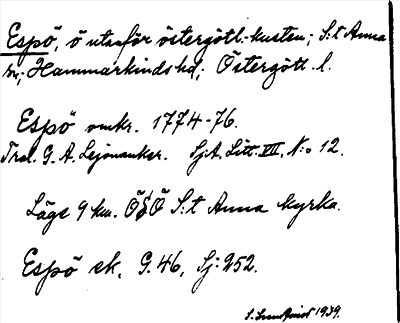 Espö, ö utanför östergötl. kusten; S:t Anna
sn; Hammarkinds hd; Östergötl. l.
Espö omkr. 1774-76.
Trol. G. A. Lejonanker. SjA. Litt. VII. N:o 12.
Läge 9 km. ÖSÖ S:t Anna kyrka.
Espö ek. G. 46, Sj: 252.
S. 1939.